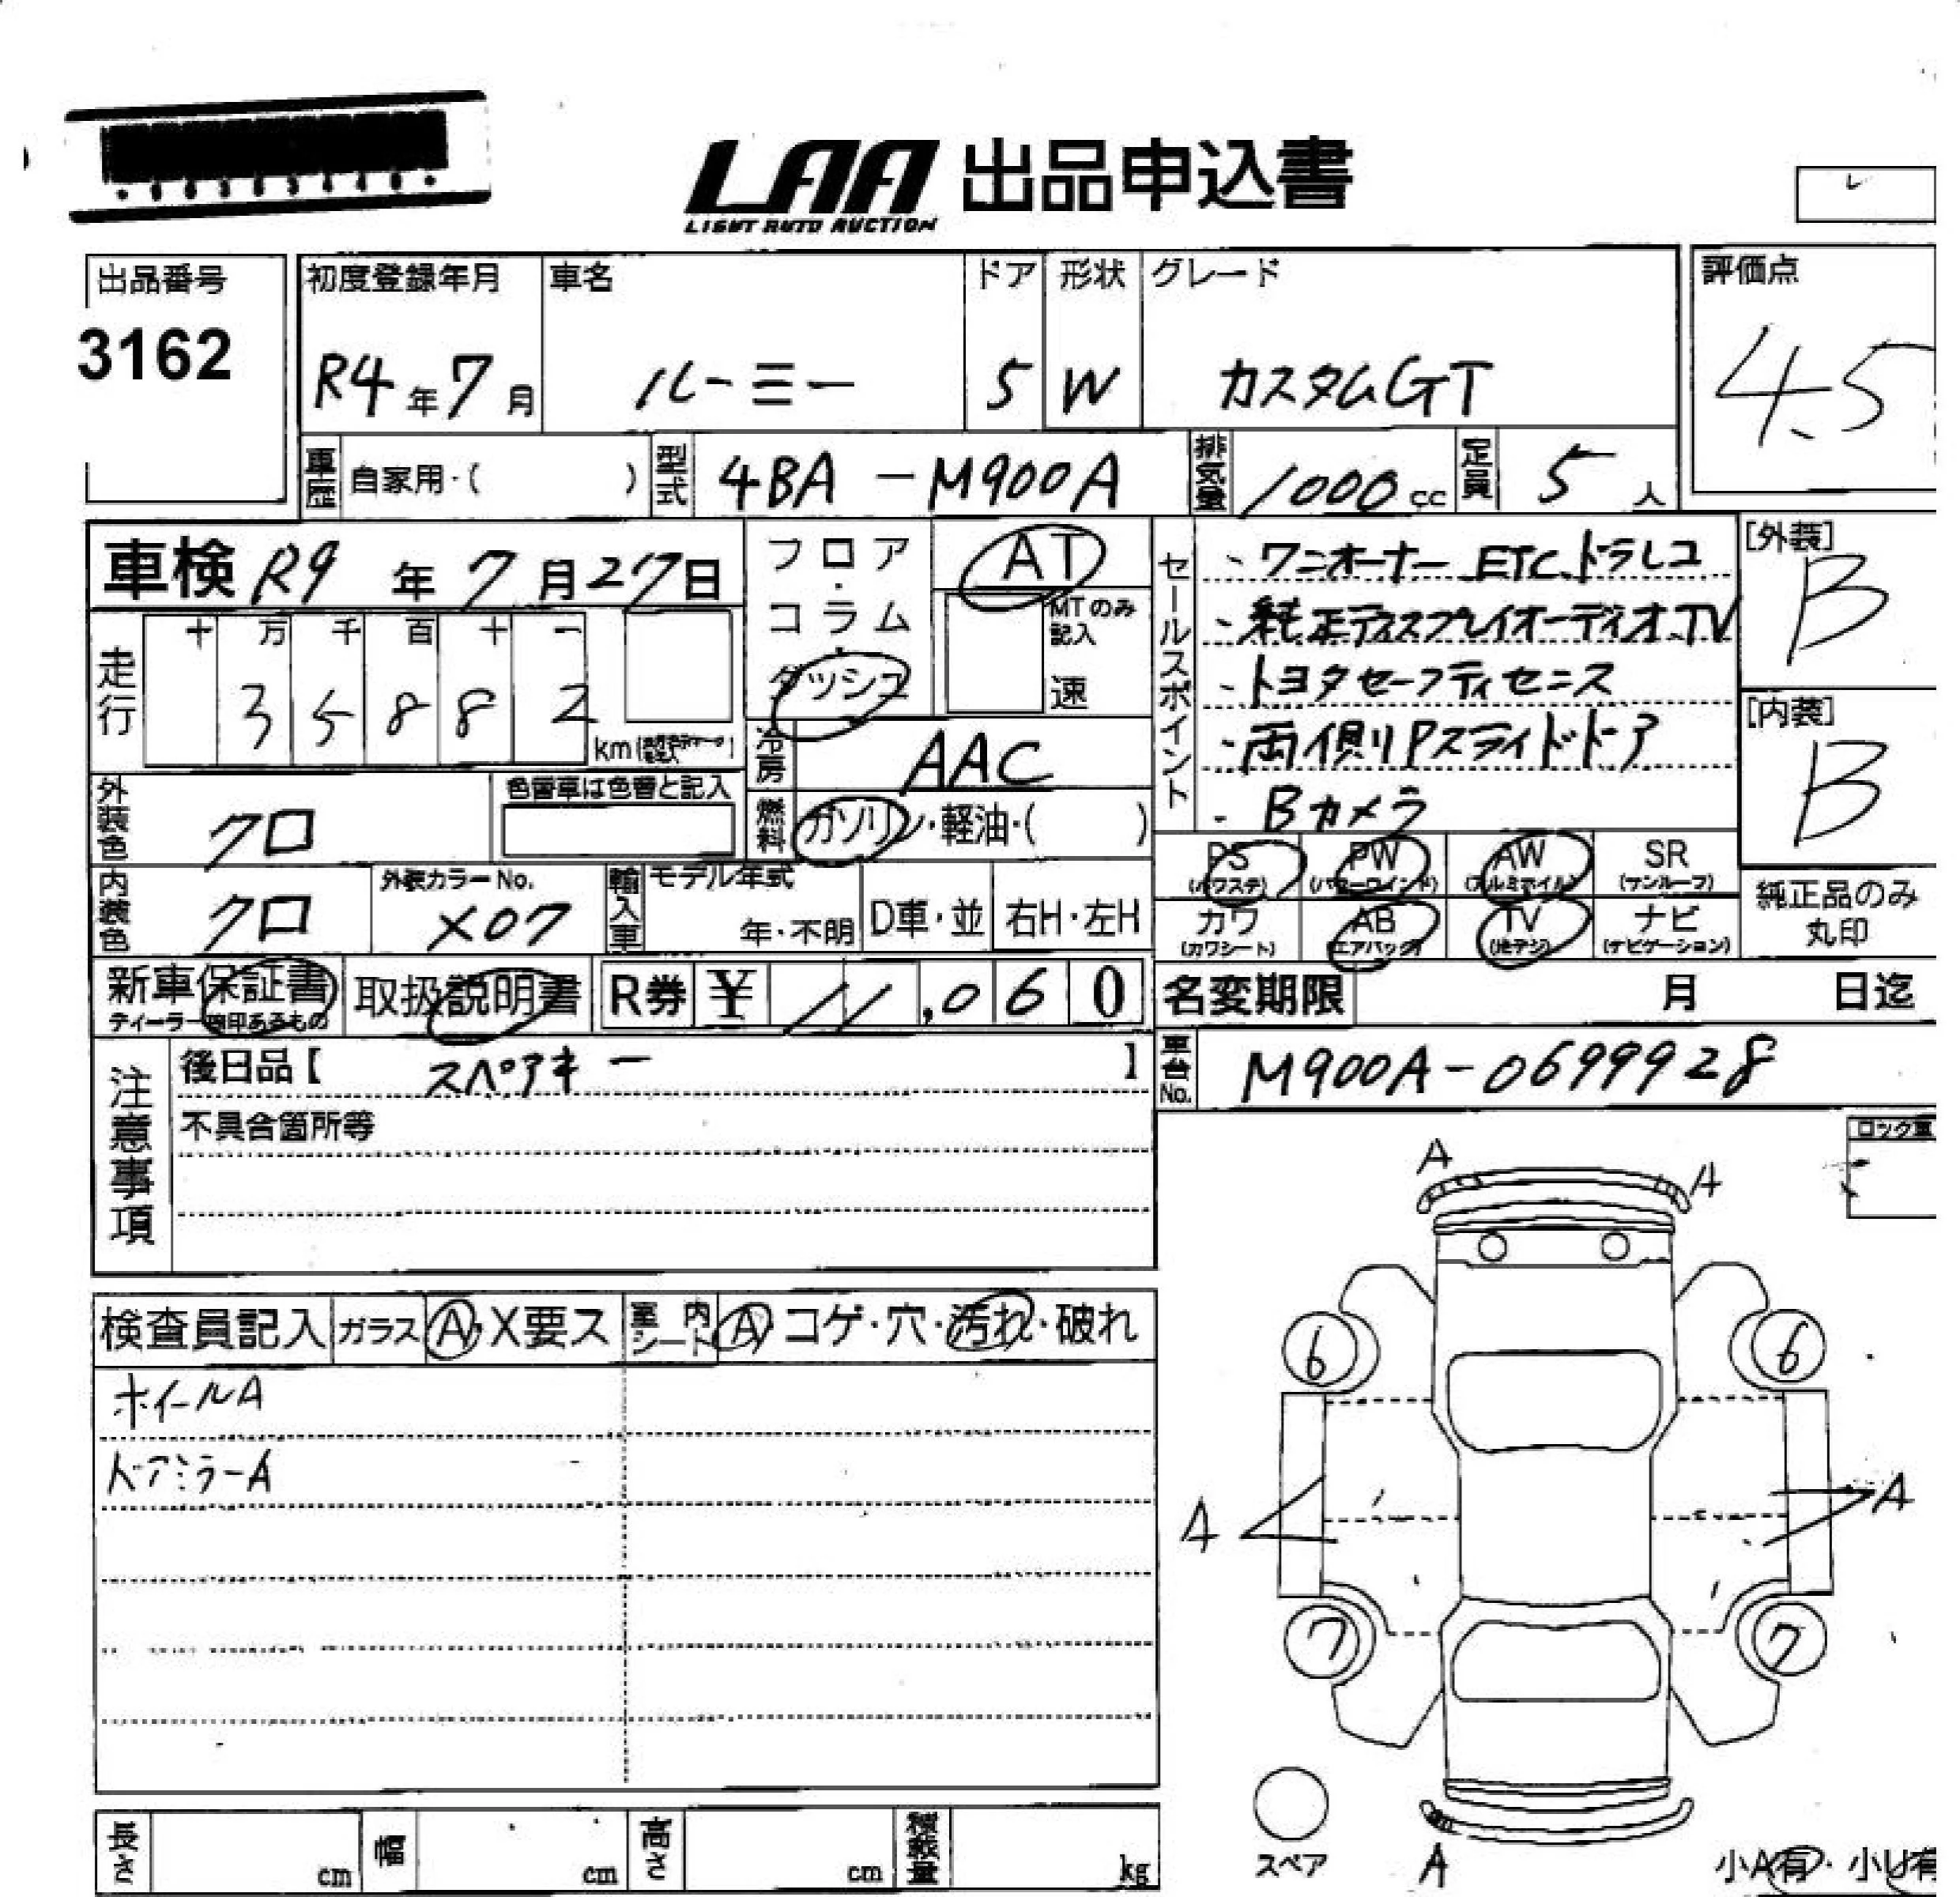 LAA 出品申込書
LIGHT AUTO AUCTION
出品番号
3162
初度登録年月
R4年7月
車名
ルーミー
ドア
5
形状
W
グレード
カスタムGT
評価点
4.5
車歴 自家用・( )
型式 4BA-M900A
排気量 1000cc
定員 5人
車検 R9年7月27日
フロア・コラム・ダッシュ
AT
MTのみ記入
速
走行
十 万 千 百 十 一
3 5 8 8 2
km
冷房 AAC
燃料 ガソリン・軽油・( )
セールスポイント
・ワンオーナー ETC.ドラレコ
・純正ディスプレイオーディオ.TV
・トヨタセーフティセンス
・両側Pスライドドア
・Bカメラ
[外装]
B
[内装]
B
外装色 クロ
色替車は色替と記入
内装色 クロ
外装カラーNo.
X07
輸入車
モデル年式
年・不明
D車・並
右H・左H
PS
(パワステ)
PW
(パワーウインド)
AW
(アルミホイル)
SR
(サンルーフ)
カワ
(カワシート)
AB
(エアバック)
TV
(地デジ)
ナビ
(ナビゲーション)
純正品のみ
丸印
新車保証書
ディーラー確印あるもの
取扱説明書
R券 ¥ 11,060
名変期限 月 日迄
注意事項
後日品【 スペアキー 】
不具合箇所等
車台No. M900A-0699928
ロック車
検査員記入
ガラス A X要ス
室内シート A コゲ・穴・汚れ・破れ
ホイールA
ドアミラーA
A
A
6
6
A
A
7
7
スペア
A
小A有・小U有
長さ cm
幅 cm
高さ cm
積載量 kg